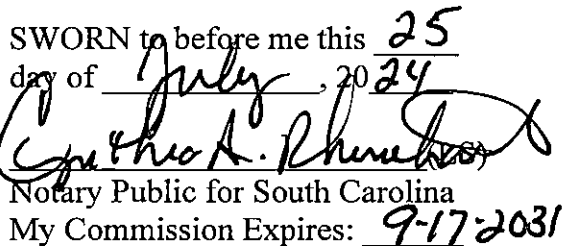 SWORN to before me this 25
day of July, 2024
Cynthia A. (LS)
Notary Public for South Carolina
My Commission Expires: 9-17-2031